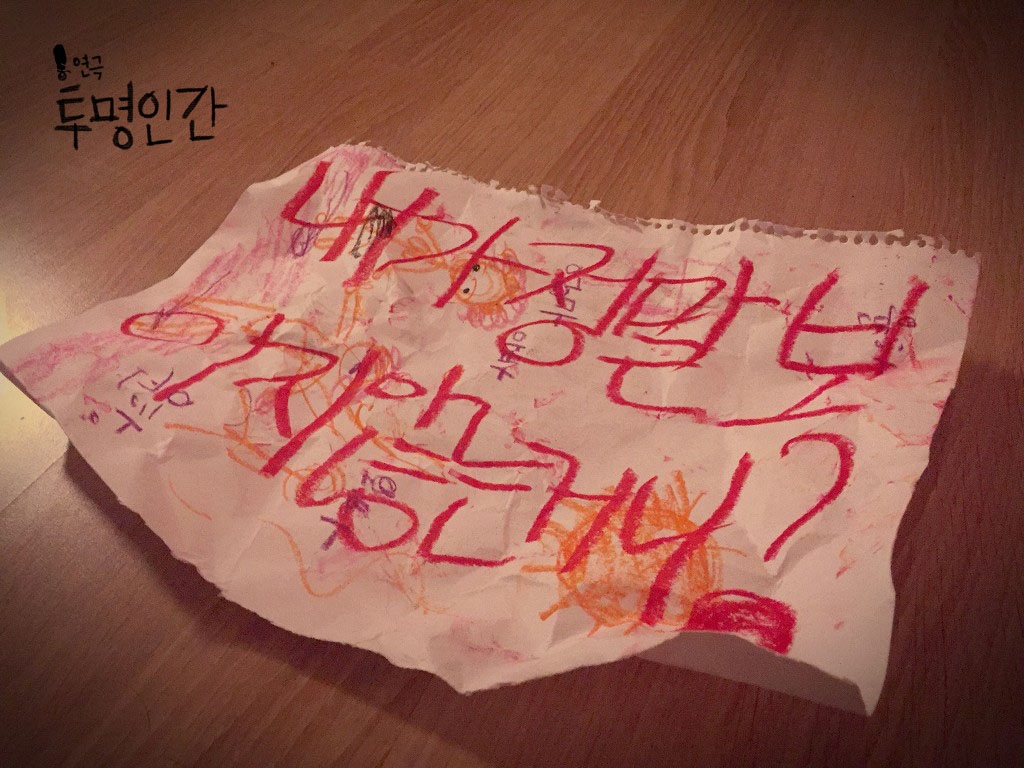 연극
투명인간
내가 정말 보
엄마
아빠
이지 않는거니?